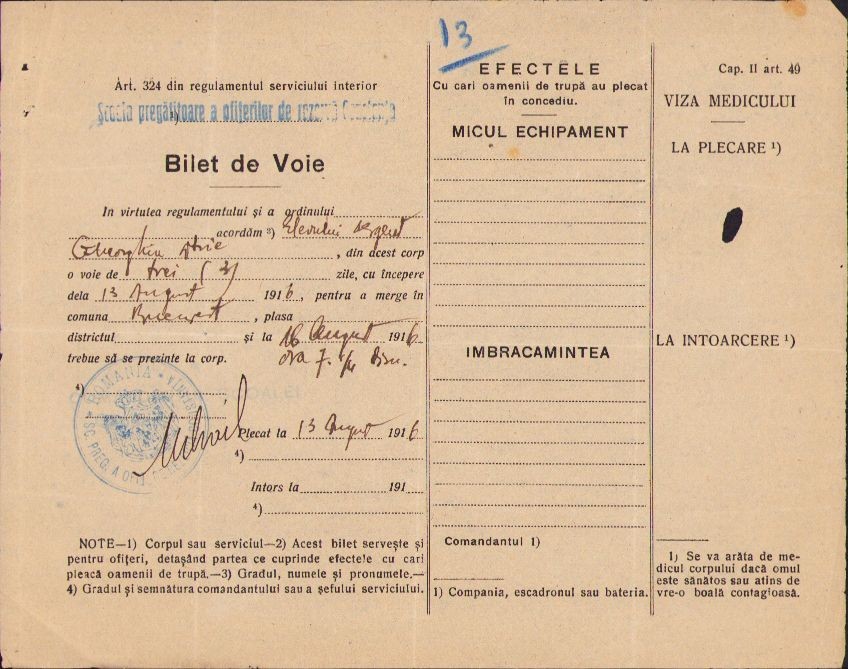 Art. 324 din regulamentul serviciului interior
Școala pregătitoare a ofițerilor de rezervă Constanța
1)
Bilet de Voie
In virtutea regulamentului și a ordinului
acordăm 3) Elevului
Gheorghiu , din acest corp
o voie de trei (3) zile, cu începere
dela 13 August 1916, pentru a merge în
comuna București , plasa
districtul și la 16 August 1916
trebue să se prezinte la corp. ora 7
4)
ROMANIA
Plecat la 13 August 1916
4)
Intors la 191
4)
NOTE—1) Corpul sau serviciul—2) Acest bilet servește și
pentru ofițeri, detașând partea ce cuprinde efectele cu cari
pleacă oamenii de trupă.—3) Gradul, numele și pronumele.—
4) Gradul și semnătura comandantului sau a șefului serviciului.
13
EFECTELE
Cu cari oamenii de trupă au plecat
în concediu.
MICUL ECHIPAMENT
IMBRACAMINTEA
Comandantul 1)
1) Compania, escadronul sau bateria.
Cap. II art. 49
VIZA MEDICULUI
LA PLECARE 1)
LA INTOARCERE 1)
1) Se va arăta de me-
dicul corpului dacă omul
este sănătos sau atins de
vre-o boală contagioasă.